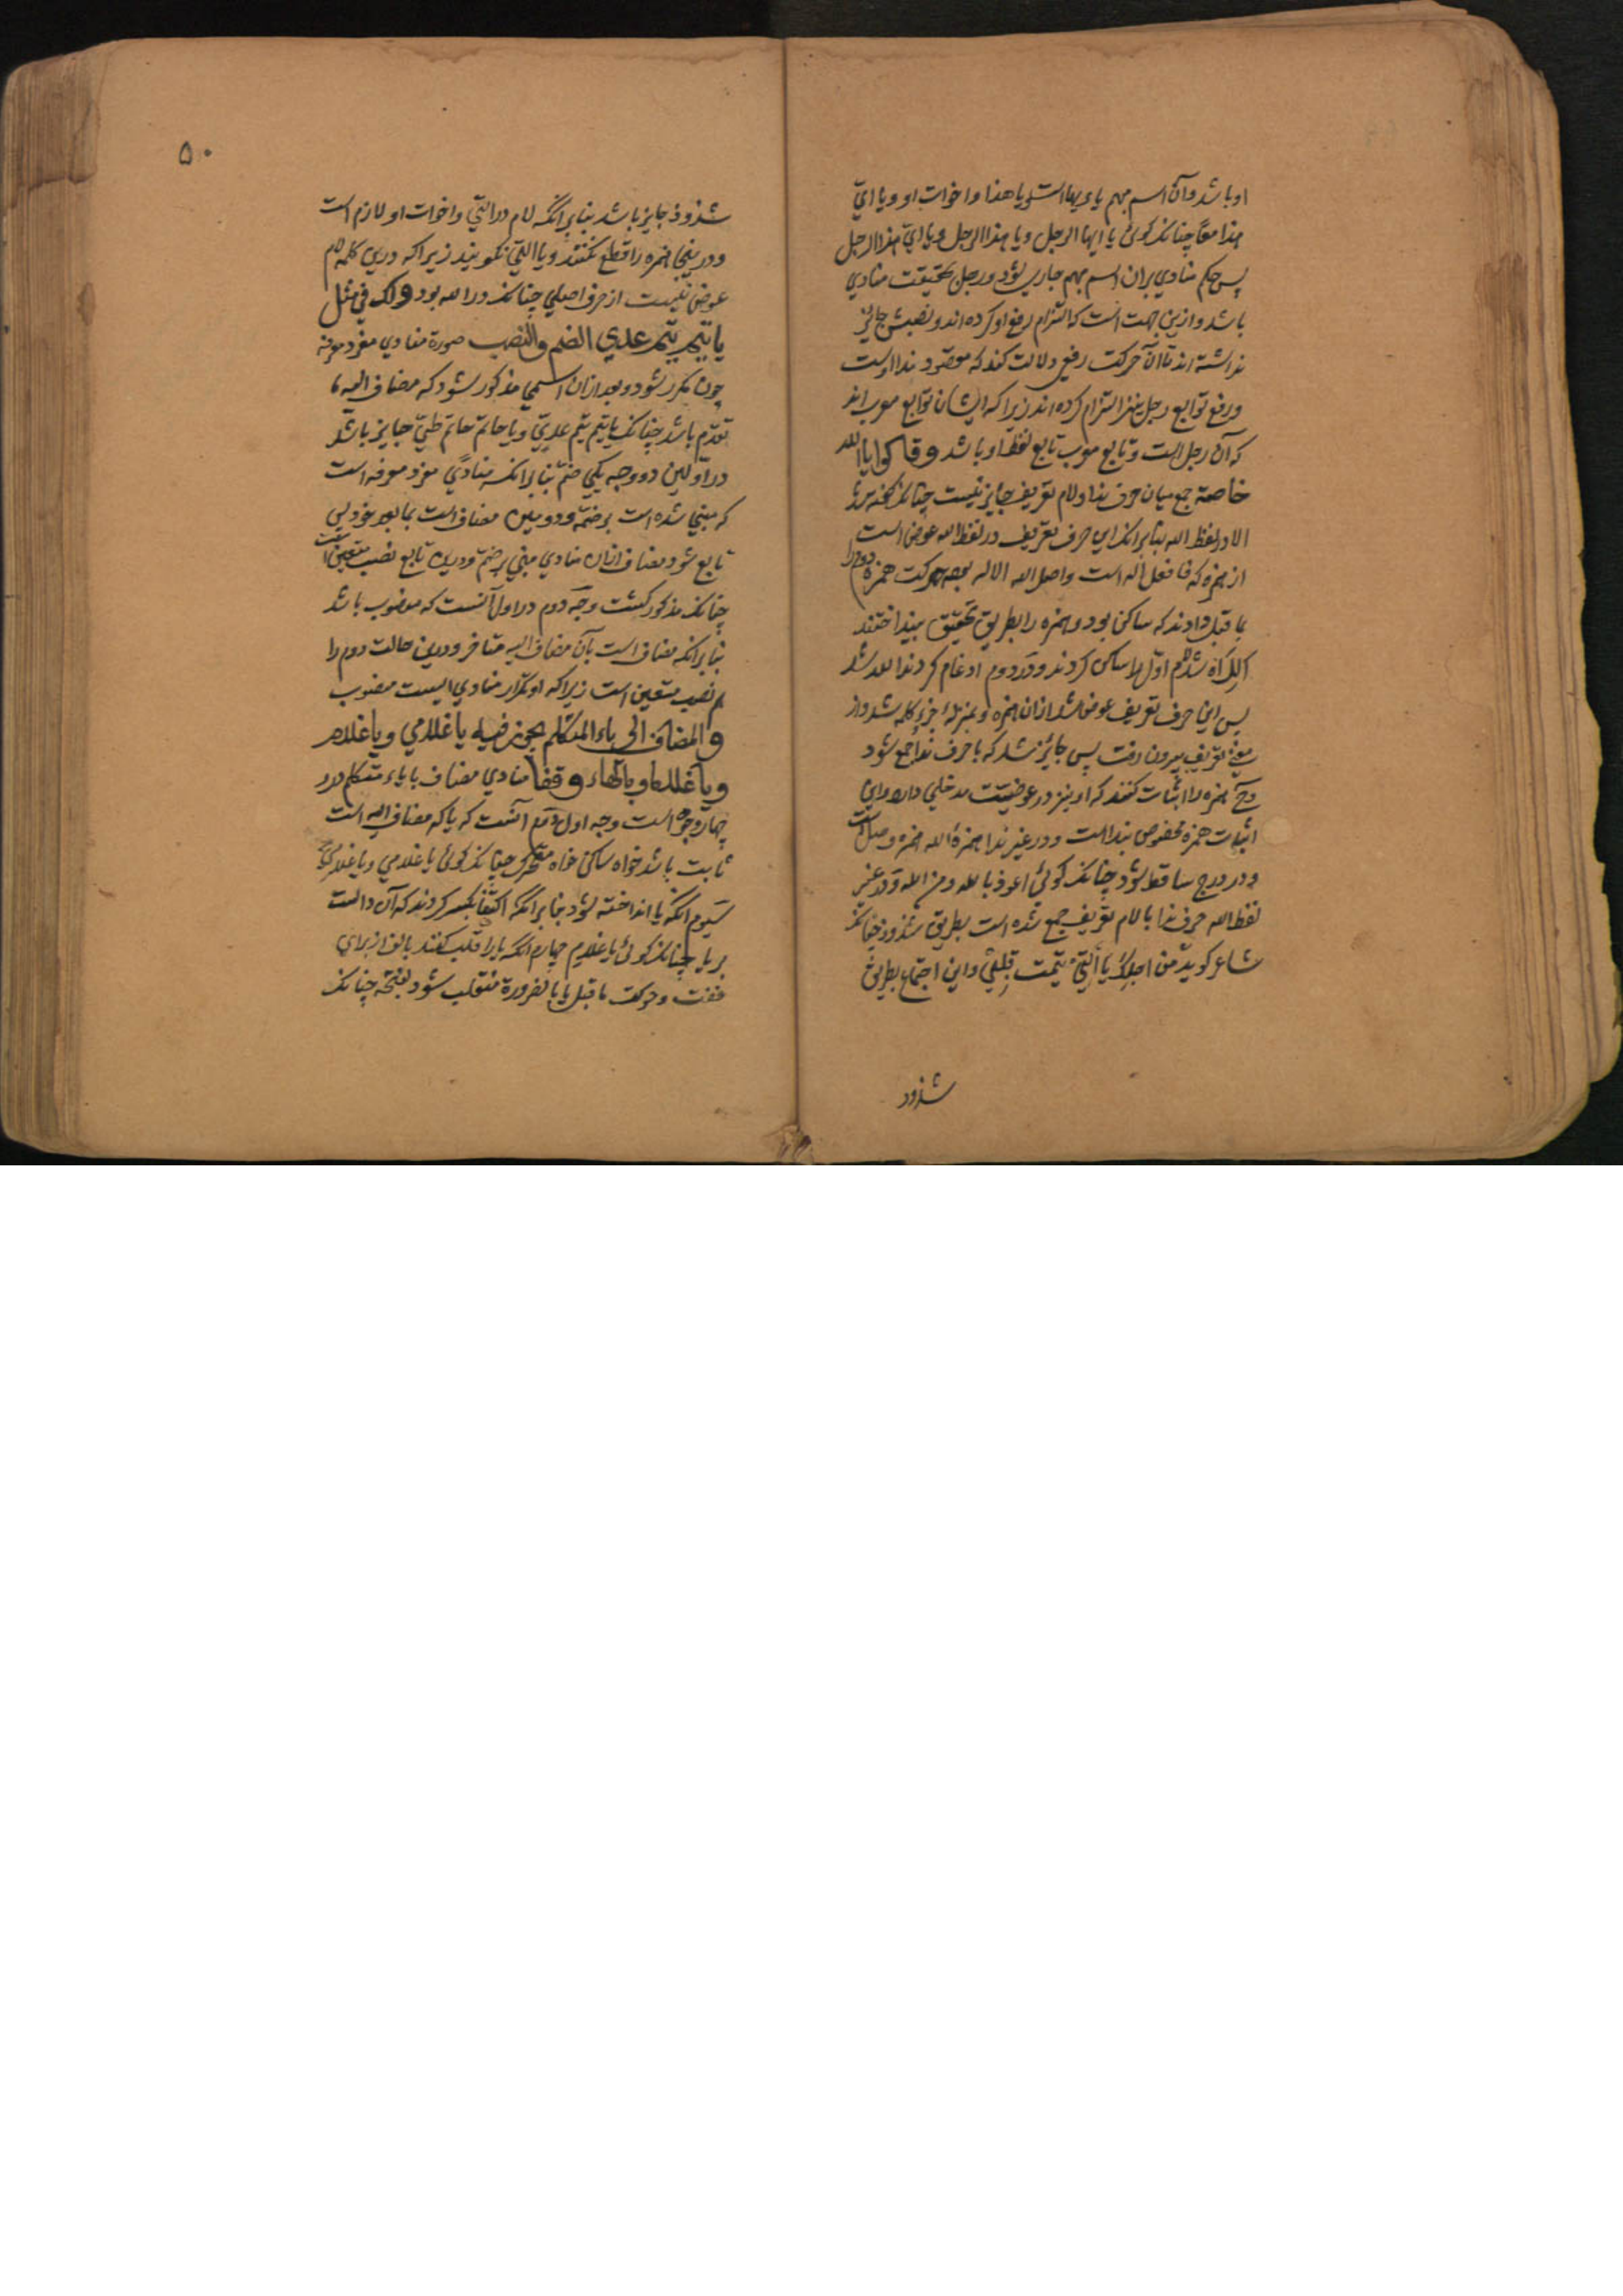 او باشد و آن اسم مبهم یا ایهاست و یا هذا و اخوات او و یا ایّ
هذا معاً چنانکه کوئی یا ایها الرجل و یا هذا الرجل و یا ایّ هذا الرجل
پس حکم منادی بران اسم مبهم جاری شود و رجل بحقیقت منادی
باشد و ازین جهت است که التزام رفع او کرده اند و نصبش جائز
نداشته اند تا آن حرکت رفع دلالت کند که مقصود بندا اوست
و رفع توابع رجل نیز التزام کرده اند زیرا که ایشان توابع معرب اند
که آن رجل است و تابع معرب تابع لفظ او باشد وقالوا یا الله
خاصة جمع میان حرف ندا و لام تعریف جایز نیست چنانکه گذشت
الا در لفظ الله بنابر آنکه این حرف تعریف در لفظ الله عوض است
از همزه که فا فعل اله است و اصل الله الاله بود حرکت همزه دوم را
بما قبل دادند که ساکن بود و همزه را بطریق تخفیف بینداختند
اللاه شد لام اول را ساکن کردند و در دوم ادغام کردند الله شد
پس این حرف تعریف عوض شد از ان همزه و بمنزلهٔ جزء کلمه شد و از
معنی تعریف بیرون رفت پس جائز شد که با حرف ندا جمع شود
و همزه را اثبات کنند که او نیز در عوضیت مدخلی دارد و این
اثبات همزه مخصوص بنداست و در غیر ندا همزهٔ الله همزه وصل است
و در درج ساقط شود چنانکه کوئی اعوذ بالله و من الله و در غیر
لفظ الله حرف ندا با لام تعریف جمع شده است بطریق شذوذ چنانکه
شاعر کوید من اجلک یا التی تیمت قلبی و این اجتماع بطریق
شذوذ
۵۰
شذوذ جایز باشد بنابر آنکه لام در التی و اخوات او لازم است
و در ینجا همزه را قطع نکنند و یا التی نکویند زیرا که درین کلمه لام
عوض نیست از حرف اصلی چنانکه در الله بود ولک فی مثل
یا تیم تیم عدی الضم والنصب صورة منادی مفرد معرفه
چون مکرر شود و بعد ازان اسمی مذکور شود که مضاف الیه
تقدیم باشد چنانکه یا تیم تیم عدیّ و یا حاتم حاتم طیّ جایز باشد
در اولین دو وجه یکی ضم بنابر آنکه منادی مفرد معرفه است
که مبنی شده است بر ضمه و دومین مضاف است بما بعد خود پس
تابع شود مضاف ازان منادی مبنی بر ضم و درین تابع نصب متعین است
چنانکه مذکور کشت وجه دوم در اول آنست که منصوب باشد
بنابر آنکه مضاف است بآن مضاف الیه متاخر و درین حالت دوم را
هم نصب متعین است زیرا که او تکرار منادی ایست منصوب
والمضاف الی یاء المتکلم یجوز فیه یا غلامی و یا غلام
و یا غلاما و بالهاء وقفا منادی مضاف بیاء متکلم در و
چهار وجوه است وجه اول و دوم آنست که یا که مضاف الیه است
ثابت باشد خواه ساکن خواه متحرک چنانکه کوئی یا غلامی و یا غلامی
سیوم آنکه یا انداخته شود بنابر آنکه اکتفا بکسر کردند که آن دالست
بر یا چنانکه کوئی یا غلام چهارم آنکه یا را قلب کنند بالف از برای
خفت و حرکت ما قبل یا بالضرورة منقلب شود بفتحه چنانکه